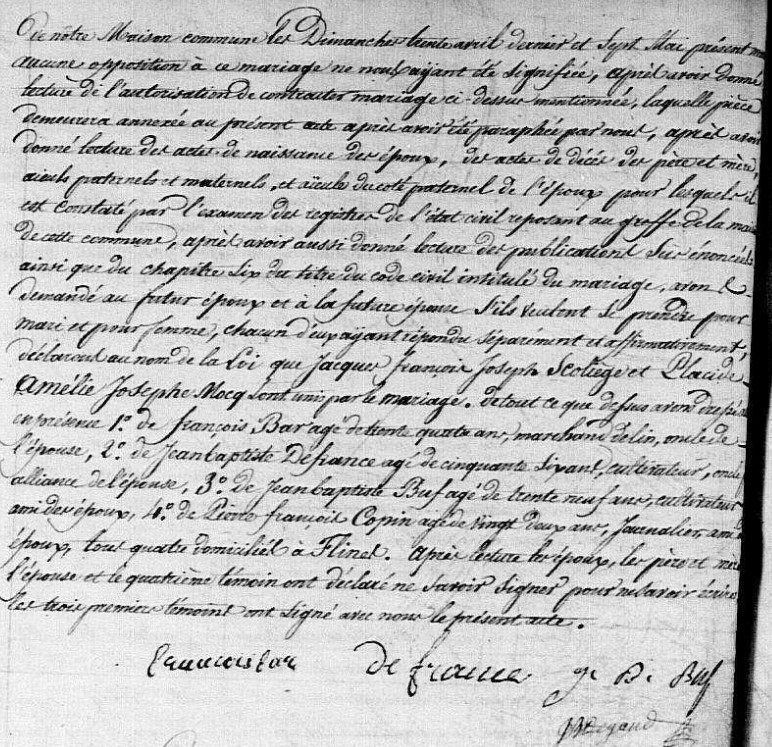 De nôtre Maison commune les Dimanches trente avril dernier et sept Mai présent
aucune opposition à ce mariage ne nous ayant été signifiée, après avoir donné
lecture de l'autorisation de contracter mariage ci-dessus mentionnée, laquelle pièce
demeurera annexée au présent acte après avoir été paraphée par nous, après avoir
donné lecture des actes de naissance des époux, des actes de décès des père et mère,
aieuls paternels et maternels, et aïeule du coté paternel de l'époux pour lesquels il
est constaté par l'examen des registres de l'état civil reposant au greffe de la
de cette commune, après avoir aussi donné lecture des publications sus énoncées
ainsi que du chapitre six du titre du code civil intitulé du mariage, avons
demandé au futur époux et à la future épouse s'ils veulent se prendre pour
mari et pour femme, chacun d'eux ayant répondu séparément et affirmativement,
déclarons au nom de la Loi que Jacques françois Joseph Scoliège et Placide
Amélie Josephe Mocq sont unis par le mariage. de tout ce que dessus avons dressé
en présence 1º. de françois Bar agé de trente quatre ans, marchand de lin, oncle de
l'épouse, 2º. de Jean baptiste Defrance agé de cinquante six ans, cultivateur, oncle
alliance de l'épouse, 3º. de Jean baptiste Buf agé de trente neuf ans, cultivateur
ami des époux, 4º. de Pierre françois Copin agé de vingt deux ans, Journalier, ami
époux, tous quatre domiciliés à Flines. après lecture les époux, les père et mère
l'épouse et le quatrième témoin ont déclaré ne savoir signer pour ne savoir écrire
les trois premiers témoins ont signé avec nous le présent acte.
francois bar de france J. B. Buf